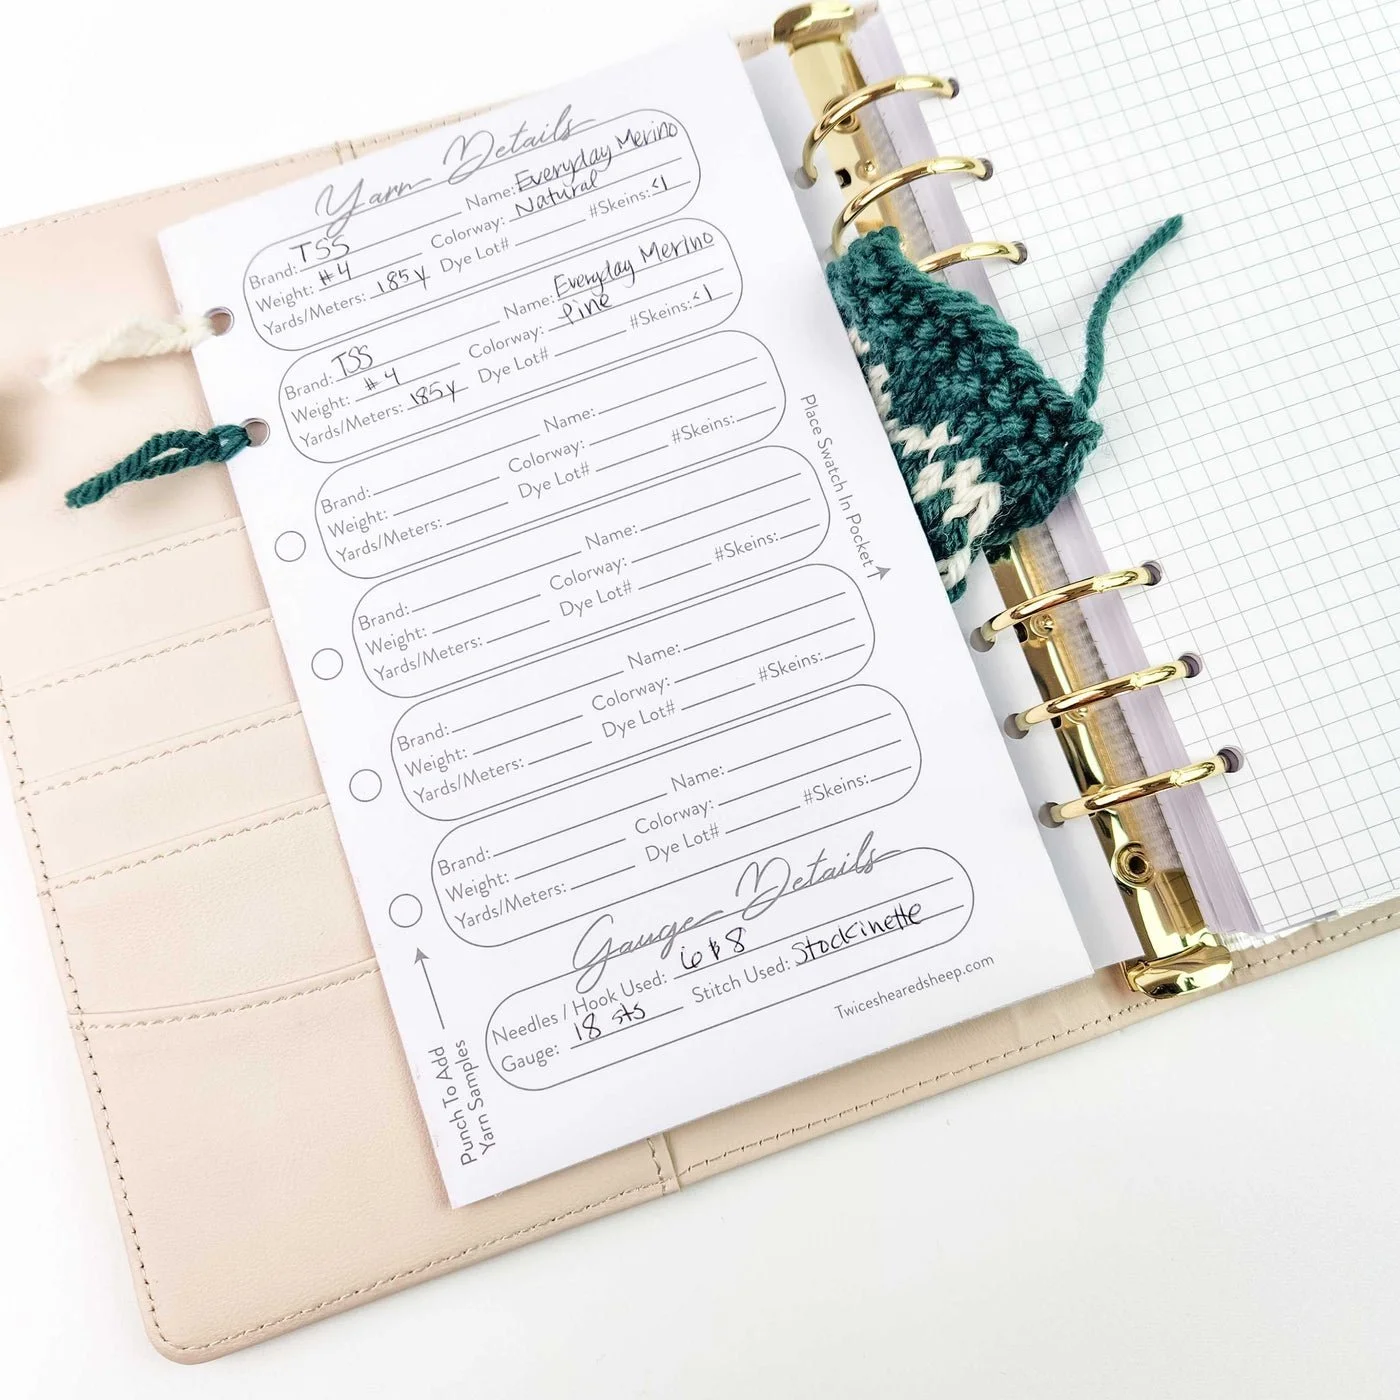 Yarn Details
Brand: TSS Name: Everyday Merino
Weight: #4 Colorway: Natural
Yards/Meters: 185y Dye Lot# #Skeins: <1
Brand: TSS Name: Everyday Merino
Weight: #4 Colorway: Pine
Yards/Meters: 185y Dye Lot# #Skeins: <1
Brand: Name:
Weight: Colorway:
Yards/Meters: Dye Lot# #Skeins:
Brand: Name:
Weight: Colorway:
Yards/Meters: Dye Lot# #Skeins:
Brand: Name:
Weight: Colorway:
Yards/Meters: Dye Lot# #Skeins:
Brand: Name:
Weight: Colorway:
Yards/Meters: Dye Lot# #Skeins:
Gauge Details
Needles / Hook Used: 6 & 8
Gauge: 18 sts Stitch Used: Stockinette
Twiceshearedsheep.com
Punch To Add
Yarn Samples
Place Swatch In Pocket